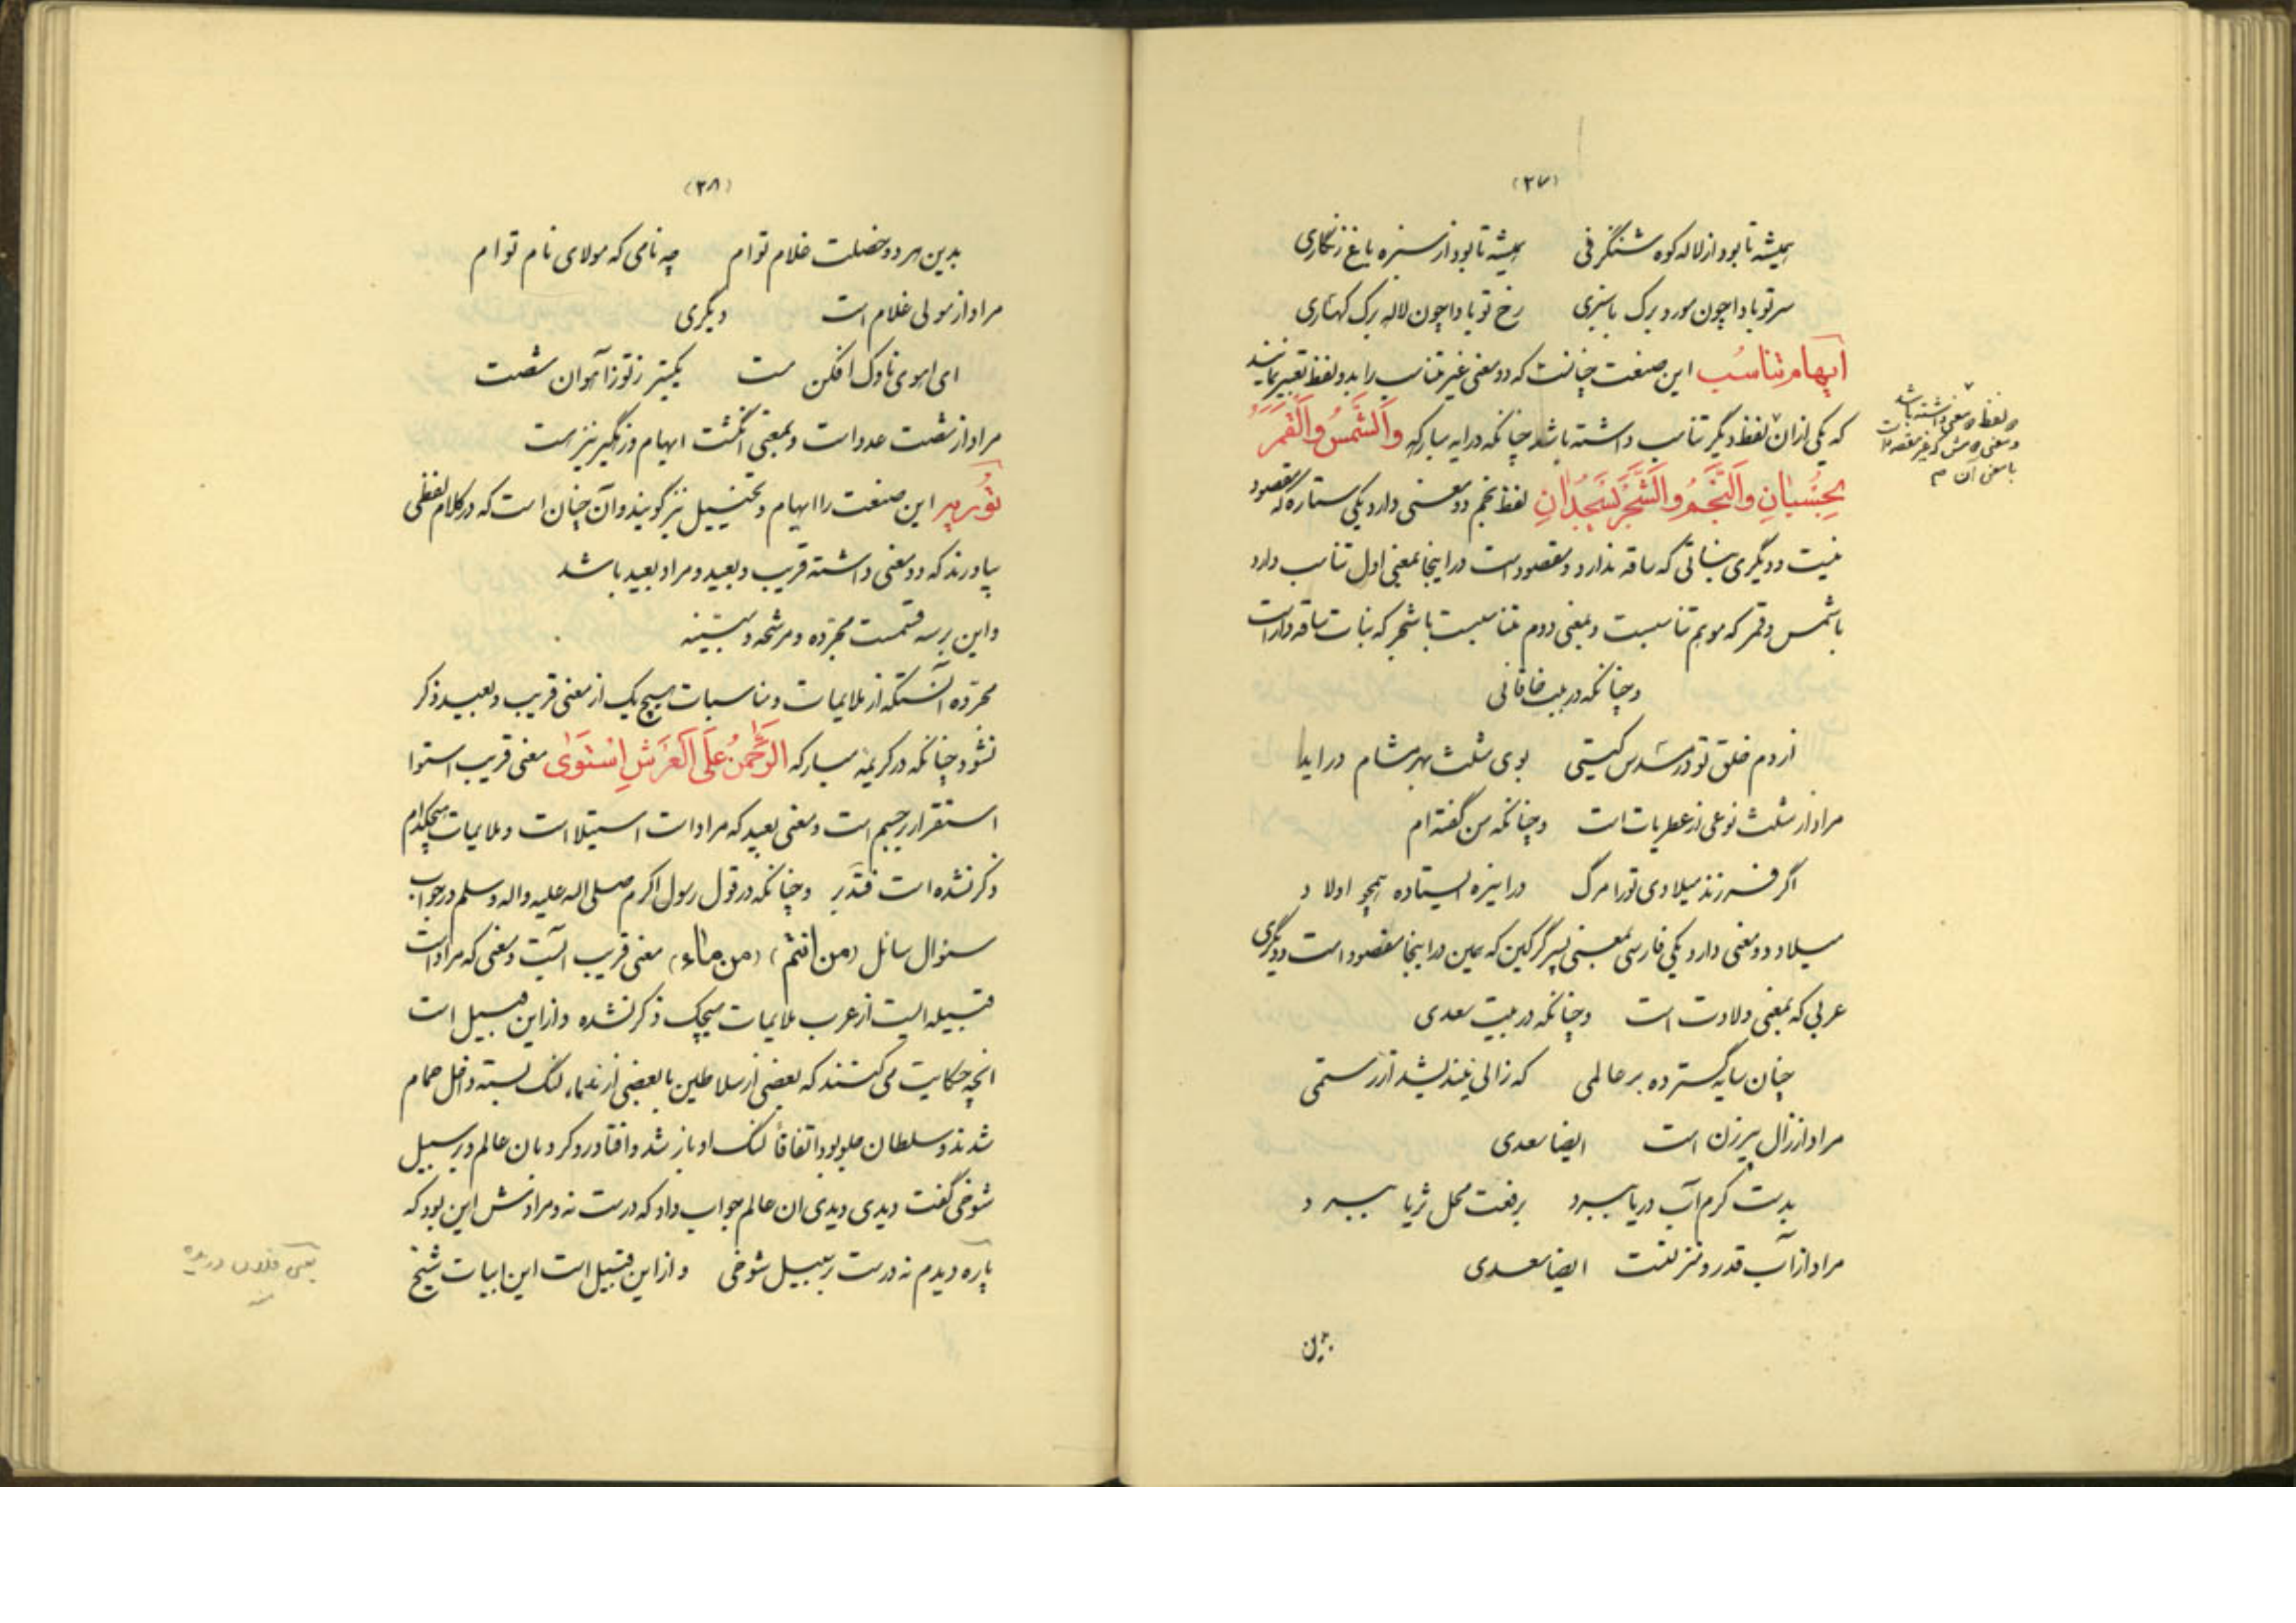 (۲۷)
همیشه تا بود از لاله کوه شنگرفی همیشه تا بود از سبزه باغ زنگاری
سر تو بادا چون مورد برگ با سبزی رخ تو بادا چون لاله برگ کهساری
ایهام تناسب این صنعت چنانست که دو معنی غیر متناسب را بدو لفظ تعبیر نمایند
که یکی ازان لفظ دیگر تناسب داشته باشد چنانکه در ایه مبارکه والشمس والقمر
بحسبان والنجم والشجر یسجدان لفظ نجم دو معنی دارد یکی ستاره که مقصود
نیست و دیگری نباتی که ساقه ندارد و مقصود است در اینجا بمعنی اول تناسب دارد
با شمس و قمر که موهم تناسبست و بمعنی دوم متناسبست با شجر که نبات ساقه دار است
و چنانکه در بیت خاقانی
از دم خلق تو در مسدس گیتی بوی مثلث بهر مشام در اید
مراد از مثلث نوعی از عطریات است و چنانکه من گفته ام
اگر فرزند میلادی تو را مرگ درا نیزه ایستاده همچو اولاد
میلاد دو معنی دارد یکی فارسی بمعنی پسر گرگین که همین در اینجا مقصود است و دیگری
عربی که بمعنی ولادت است و چنانکه در بیت سعدی
چنان سایه گسترده بر عالمی که زالی نیندیشد از رستمی
مراد از زال پیرزن است ایضا سعدی
بدست کرم آب دریا ببرد برفعت محل ثریا ببرد
مراد از آب قدر و منزلتست ایضا سعدی
و لفظ دو معنی داشته باشد
با معنی آن م
(۲۸)
بدین هر دو خصلت غلام توام چه نامی که مولای نام توام
مراد از مولی غلام است دیگری
ای اهوی ناوک افکن مست یکتیر ز تو ز آهوان شصت
مراد از شصت عدد است و بمعنی انگشت ابهام و زهگیر نیز است
توریه این صنعت را ایهام و تخییل نیز گویند و آن چنان است که در کلام لفظی
بیاورند که دو معنی داشته قریب و بعید و مراد بعید باشد
و این بر سه قسمست مجرّده و مرشحه و مبیّنه
مجرّده آنستکه از ملایمات و مناسبات هیچ یک از معنی قریب و بعید ذکر
نشود چنانکه در کریمه مبارکه الرحمن علی العرش استوی معنی قریب استوا
استقرار بر جسم است و معنی بعید که مراد است استیلا است و ملایمات هیچکدام
ذکر نشده است فتدبر و چنانکه در قول رسول اکرم صلی اله علیه واله وسلم در جواب
سئوال سائل (من انتم) (من ماء) معنی قریب آبست و معنی که مراد است
قبیله ایست از عرب ملایمات هیچیک ذکر نشده و از این قبیل است
انچه حکایت می کنند که بعضی از سلاطین با بعضی از ندماء لنگ بسته داخل حمام
شدند و سلطان جلو بود اتفاقاً لنگ او باز شد و افتاد رو کرد بان عالم و بر سبیل
شوخی گفت دیدی دیدی ان عالم جواب داد که درست نه و مرادش این بود که
پاره دیدم نه درست بر سبیل شوخی و از این قبیل است این ابیات شیخ